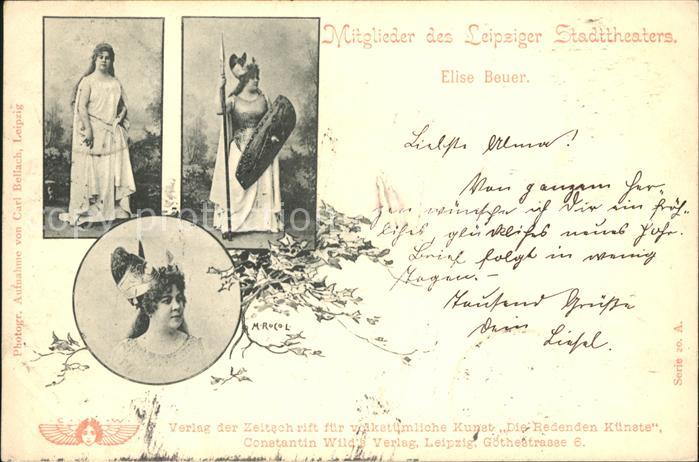 Mitglieder des Leipziger Stadttheaters.
Elise Beuer.
Liebste Alma!
Von ganzem Her-
zen wünsche ich Dir ein fröh-
liches glückliches neues Jahr.
Brief folgt in wenig
Tagen.-
Tausend Grüße
Dein
Liesel.
M. ROCOL
Photogr. Aufnahme von Carl Bellach, Leipzig
Serie 20. A.
Verlag der Zeitschrift für volkstümliche Kunst „Die Redenden Künste",
Constantin Wild's Verlag, Leipzig, Göthestrasse 6.
copy-protection